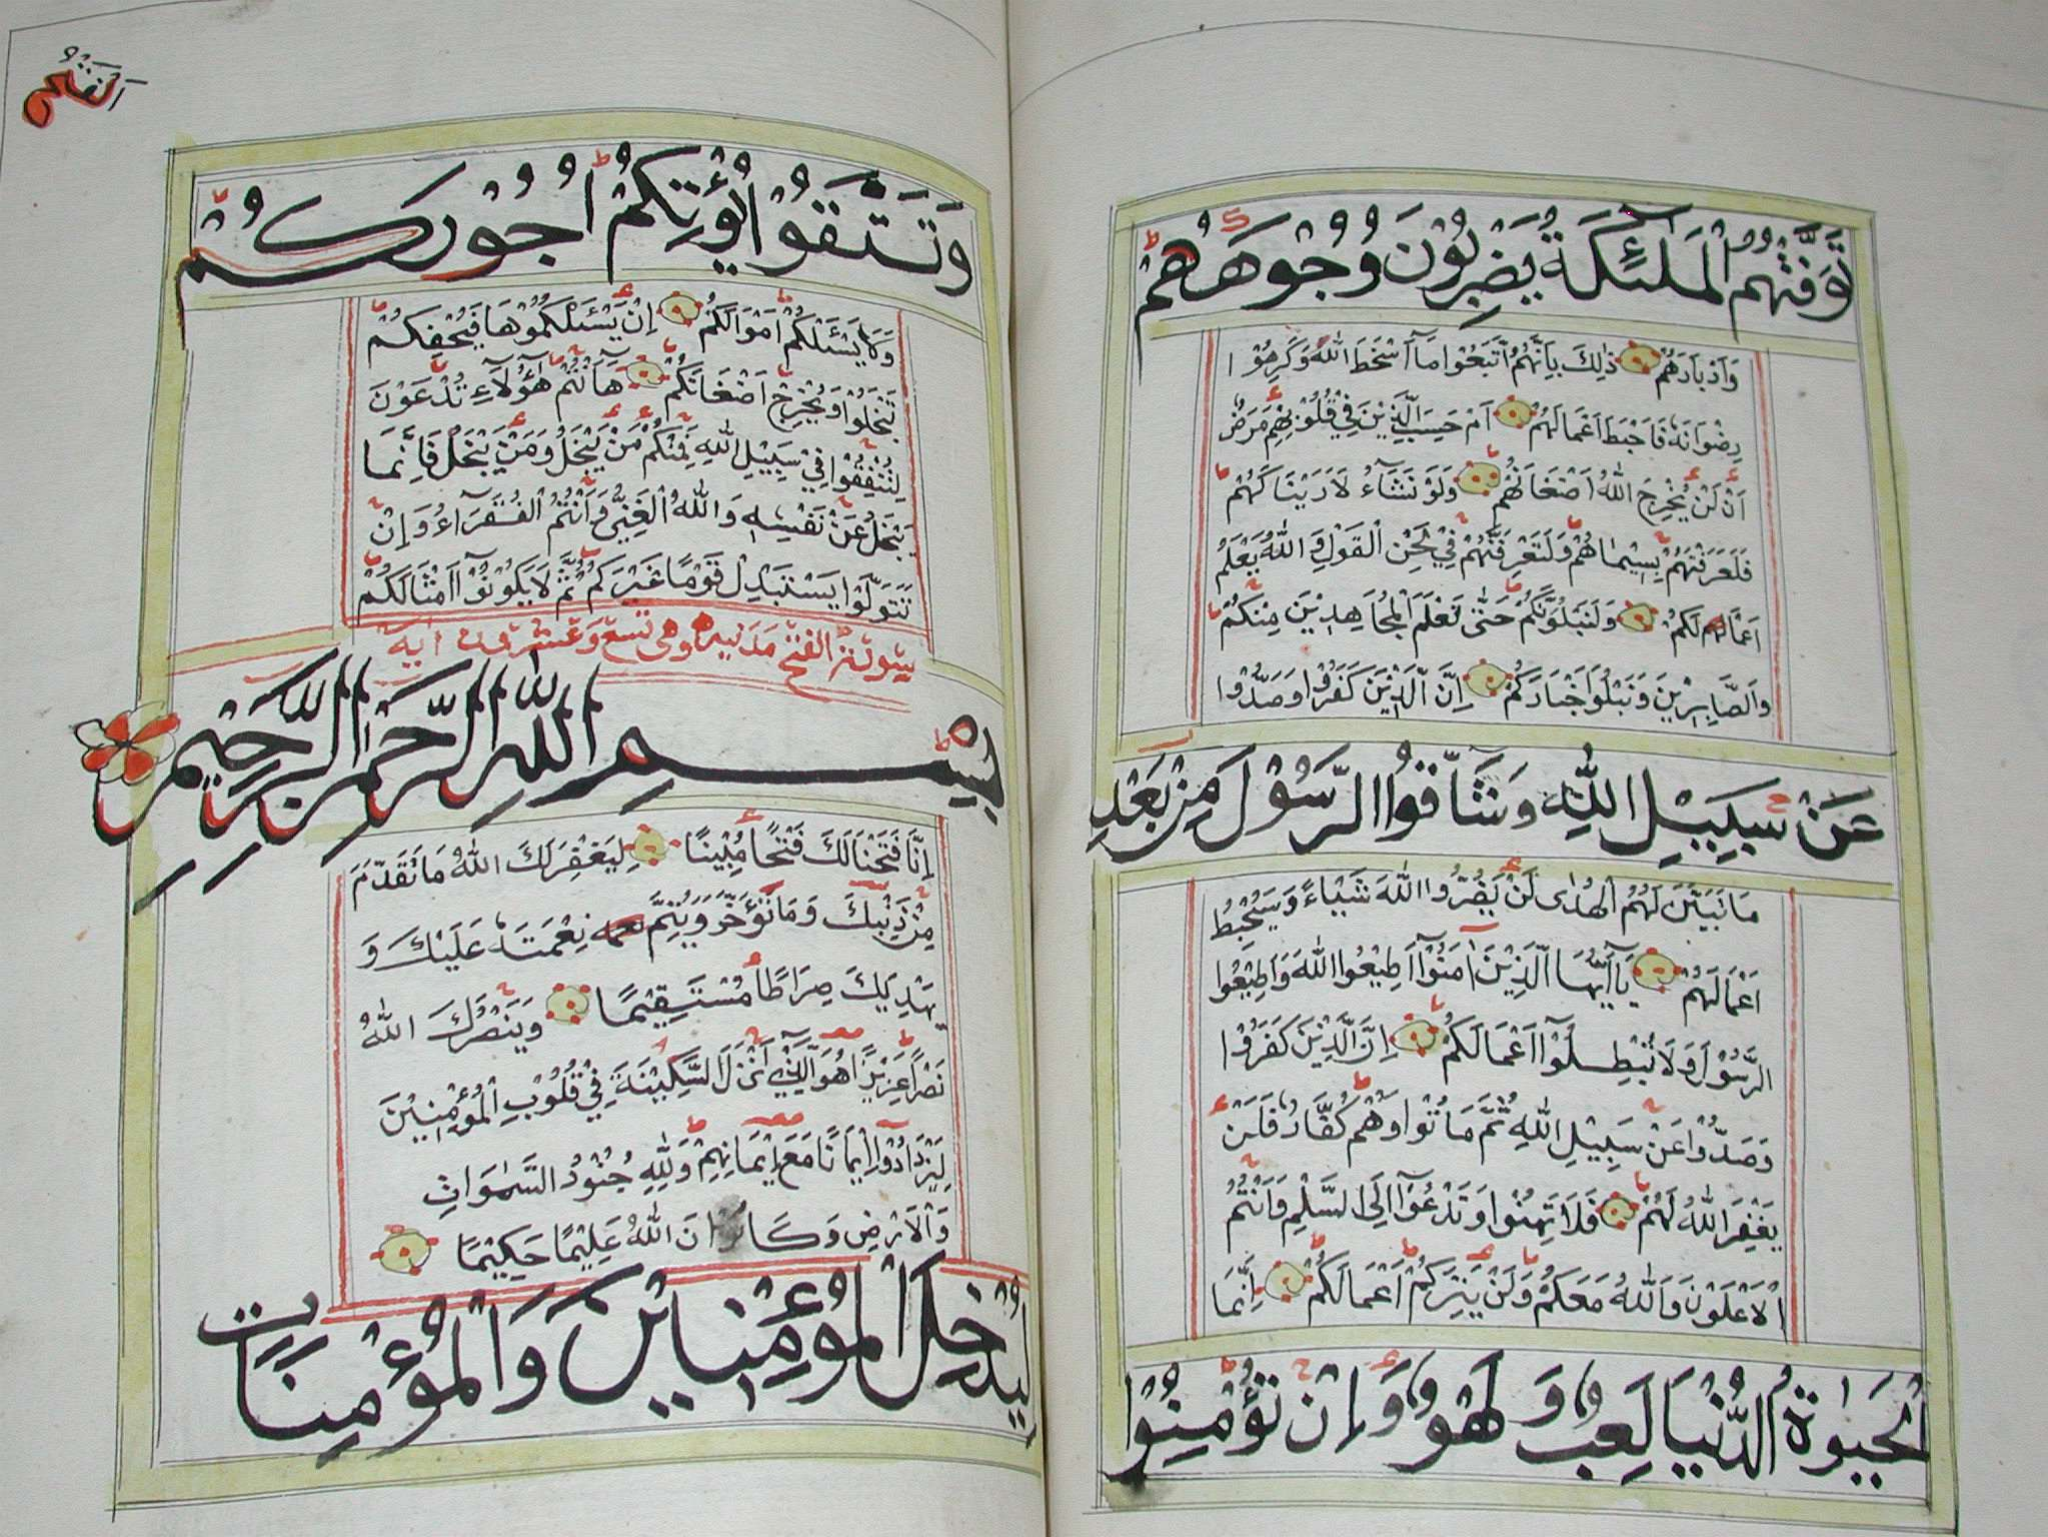 تَوَفَّتْهُمُ الْمَلٰئِكَةُ يَضْرِبُوْنَ وُجُوْهَهُمْ
وَاَدْبَارَهُمْ ذٰلِكَ بِاَنَّهُمُ اتَّبَعُوْا مَاۤ اَسْخَطَ اللهَ وَكَرِهُوْا
رِضْوَانَهٗ فَاَحْبَطَ اَعْمَالَهُمْ اَمْ حَسِبَ الَّذِيْنَ فِيْ قُلُوْبِهِمْ مَرَضٌ
اَنْ لَنْ يُخْرِجَ اللهُ اَضْغَانَهُمْ وَلَوْ نَشَاۤءُ لَاَرَيْنَاكَهُمْ
فَلَعَرَفْتَهُمْ بِسِيْمَاهُمْ وَلَتَعْرِفَنَّهُمْ فِيْ لَحْنِ الْقَوْلِ وَاللهُ يَعْلَمُ
اَعْمَالَكُمْ وَلَنَبْلُوَنَّكُمْ حَتّٰى نَعْلَمَ الْمُجَاهِدِيْنَ مِنْكُمْ
وَالصَّابِرِيْنَ وَنَبْلُوَا اَخْبَارَكُمْ اِنَّ الَّذِيْنَ كَفَرُوْا وَصَدُّوْا
عَنْ سَبِيْلِ اللهِ وَشَاۤقُّوا الرَّسُوْلَ مِنْ بَعْدِ
مَا تَبَيَّنَ لَهُمُ الْهُدٰى لَنْ يَضُرُّوا اللهَ شَيْـًٔا وَسَيُحْبِطُ
اَعْمَالَهُمْ يَاۤاَيُّهَا الَّذِيْنَ اٰمَنُوْاۤ اَطِيْعُوا اللهَ وَاَطِيْعُوا
الرَّسُوْلَ وَلَا تُبْطِلُوْاۤ اَعْمَالَكُمْ اِنَّ الَّذِيْنَ كَفَرُوْا
وَصَدُّوْا عَنْ سَبِيْلِ اللهِ ثُمَّ مَاتُوْا وَهُمْ كُفَّارٌ فَلَنْ
يَغْفِرَ اللهُ لَهُمْ فَلَا تَهِنُوْا وَتَدْعُوْاۤ اِلَى السَّلْمِ وَاَنْتُمُ
الْاَعْلَوْنَ وَاللهُ مَعَكُمْ وَلَنْ يَتِرَكُمْ اَعْمَالَكُمْ اِنَّمَا
الْحَيٰوةُ الدُّنْيَا لَعِبٌ وَلَهْوٌ وَاِنْ تُؤْمِنُوْا
وَتَتَّقُوْا يُؤْتِكُمْ اُجُوْرَكُمْ
وَلَا يَسْئَلْكُمْ اَمْوَالَكُمْ اِنْ يَسْئَلْكُمُوْهَا فَيُحْفِكُمْ
تَبْخَلُوْا وَيُخْرِجْ اَضْغَانَكُمْ هَاۤاَنْتُمْ هٰۤؤُلَاۤءِ تُدْعَوْنَ
لِتُنْفِقُوْا فِيْ سَبِيْلِ اللهِ فَمِنْكُمْ مَنْ يَبْخَلُ وَمَنْ يَبْخَلْ فَاِنَّمَا
يَبْخَلُ عَنْ نَفْسِهٖ وَاللهُ الْغَنِيُّ وَاَنْتُمُ الْفُقَرَاۤءُ وَاِنْ
تَتَوَلَّوْا يَسْتَبْدِلْ قَوْمًا غَيْرَكُمْ ثُمَّ لَا يَكُوْنُوْاۤ اَمْثَالَكُمْ
سورة الفتح مدنية وهي تسع وعشرون اية
بِسْمِ اللهِ الرَّحْمٰنِ الرَّحِيْمِ
اِنَّا فَتَحْنَا لَكَ فَتْحًا مُبِيْنًا لِيَغْفِرَ لَكَ اللهُ مَا تَقَدَّمَ
مِنْ ذَنْبِكَ وَمَا تَاَخَّرَ وَيُتِمَّ نِعْمَتَهٗ عَلَيْكَ وَ
يَهْدِيَكَ صِرَاطًا مُسْتَقِيْمًا وَيَنْصُرَكَ اللهُ
نَصْرًا عَزِيْزًا هُوَ الَّذِيْۤ اَنْزَلَ السَّكِيْنَةَ فِيْ قُلُوْبِ الْمُؤْمِنِيْنَ
لِيَزْدَادُوْاۤ اِيْمَانًا مَعَ اِيْمَانِهِمْ وَلِلّٰهِ جُنُوْدُ السَّمٰوَاتِ
وَالْاَرْضِ وَكَانَ اللهُ عَلِيْمًا حَكِيْمًا
لِيُدْخِلَ الْمُؤْمِنِيْنَ وَالْمُؤْمِنَاتِ